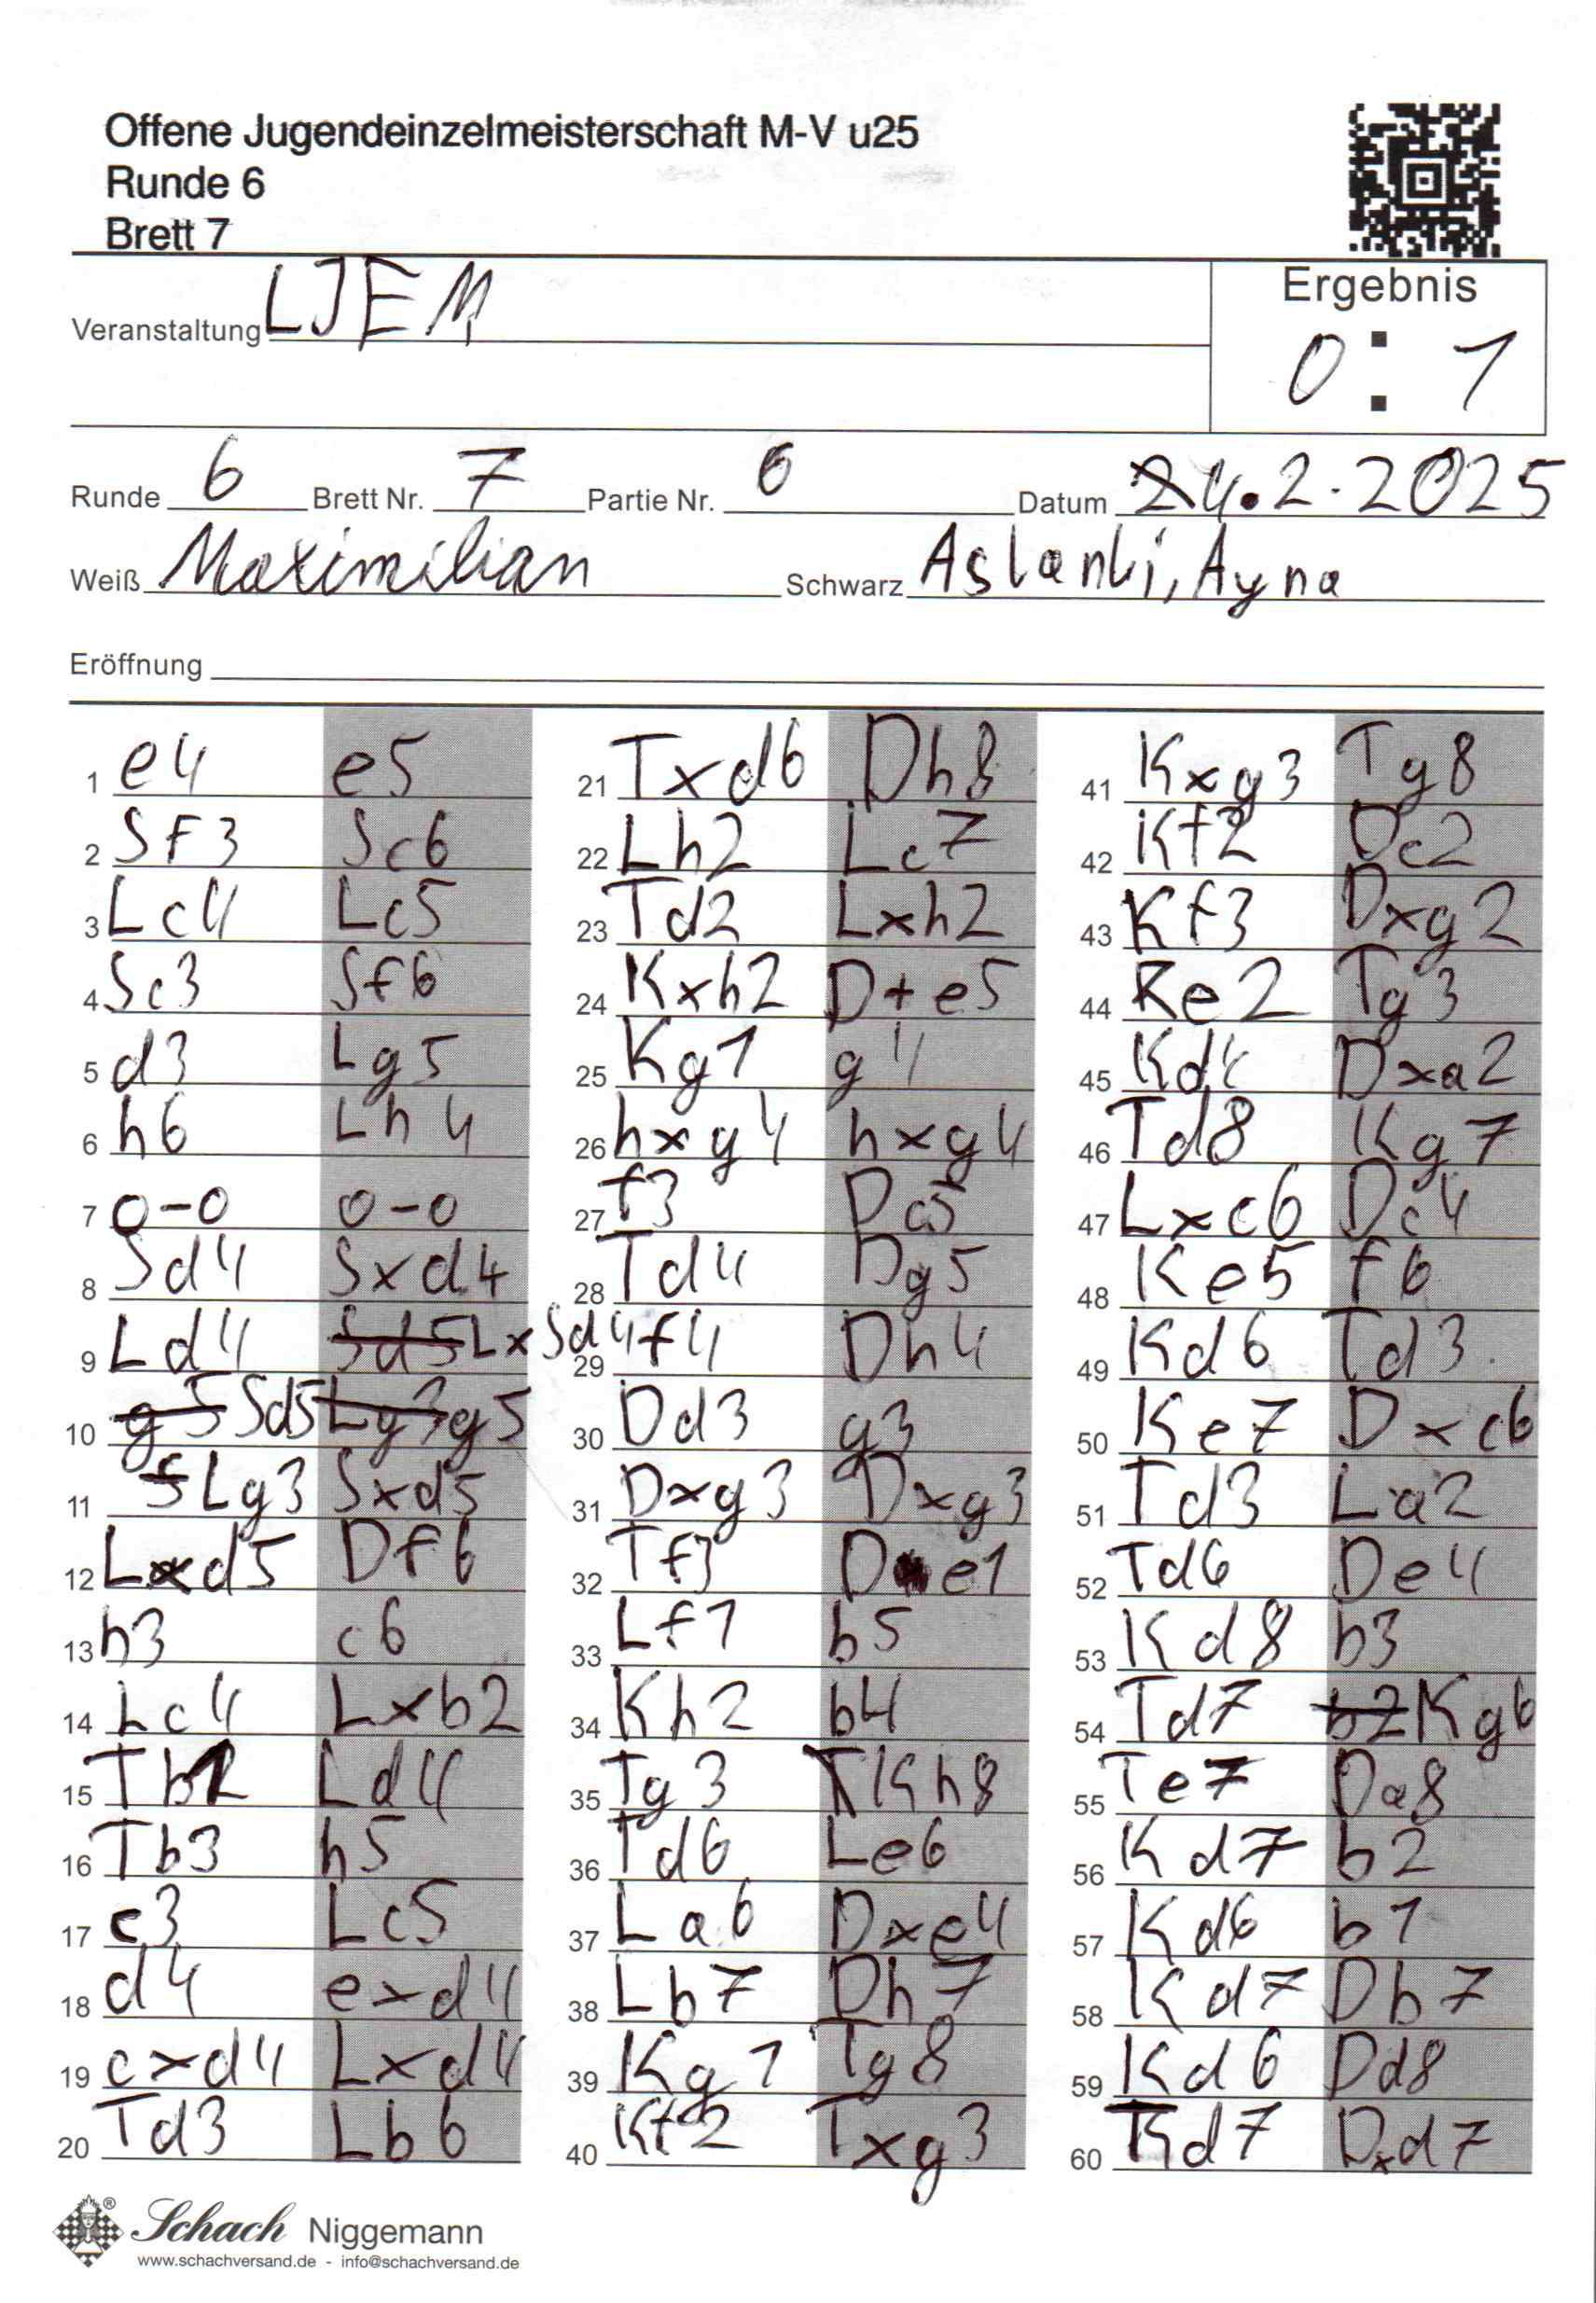 Offene Jugendeinzelmeisterschaft M-V u25
Runde 6
Brett 7
Veranstaltung LJEM
Ergebnis
0 : 1
Runde 6 Brett Nr. 7 Partie Nr. 6 Datum 24.2.2025
Weiß Maximilian Schwarz Aslanli, Ayna
Eröffnung
1 e4 e5
2 Sf3 Sc6
3 Lc4 Lc5
4 Sc3 Sf6
5 d3 Lg5
6 h6 Lh4
7 0-0 0-0
8 Sd4 Sxd4
9 Ld4 Sd5 LxSd4
10 g5 Sd5 Lg3 g5
11 Lg3 Sxd5
12 Lxd5 Df6
13 h3 c6
14 Lc4 Lxb2
15 Tb1 Ld4
16 Tb3 h5
17 c3 Lc5
18 d4 exd4
19 cxd4 Lxd4
20 Td3 Lb6
21 Txd6 Dh8
22 Lh2 Lc7
23 Td2 Lxh2
24 Kxh2 D+e5
25 Kg1 g4
26 hxg4 hxg4
27 f3 Dc5
28 Td4 Dg5
29 f4 Dh4
30 Dd3 g3
31 Dxg3 Dxg3
32 Tf3 De1
33 Lf1 b5
34 Kh2 b4
35 Tg3 Kh8
36 Td6 Le6
37 La6 Dxe4
38 Lb7 Dh7
39 Kg1 Tg8
40 Kf2 Txg3
41 Kxg3 Tg8
42 Kf2 Dc2
43 Kf3 Dxg2
44 Ke2 Tg3
45 Kd4 Dxa2
46 Td8 Kg7
47 Lxc6 Dc4
48 Ke5 f6
49 Kd6 Td3
50 Ke7 Dxc6
51 Td3 La2
52 Td6 De4
53 Kd8 b3
54 Td7 b2 Kg6
55 Te7 Da8
56 Kd7 b2
57 Kd6 b1
58 Kd7 Db7
59 Kd6 Dd8
60 Kd7 Dxd7
Schach Niggemann
www.schachversand.de - info@schachversand.de